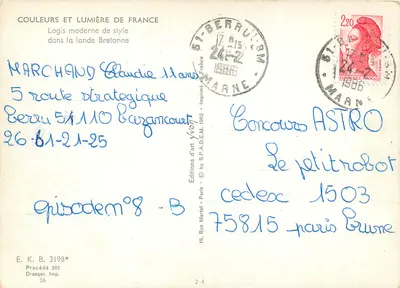 COULEURS ET LUMIÈRE DE FRANCE
Logis moderne de style
dans la lande Bretonne
MARCHAND Claudie
5 route strategique
Berru 51110 Bazancourt
26-61-21-25
episode n°8 - B
E. K. B. 3198*
Procédé 305
Draeger, Imp.
56
Editions d'art YVON
15, Rue Martel - Paris - © by S.P.A.D.E.M. 1982 - Imprimé en France
2-4
51-BERRU-BM
17H15
24-2
1986
MARNE
2,20
51-BERRU-BM
24-2
1986
MARNE
Concours ASTRO
Le petit robot
cedex 1503
75815 paris brune